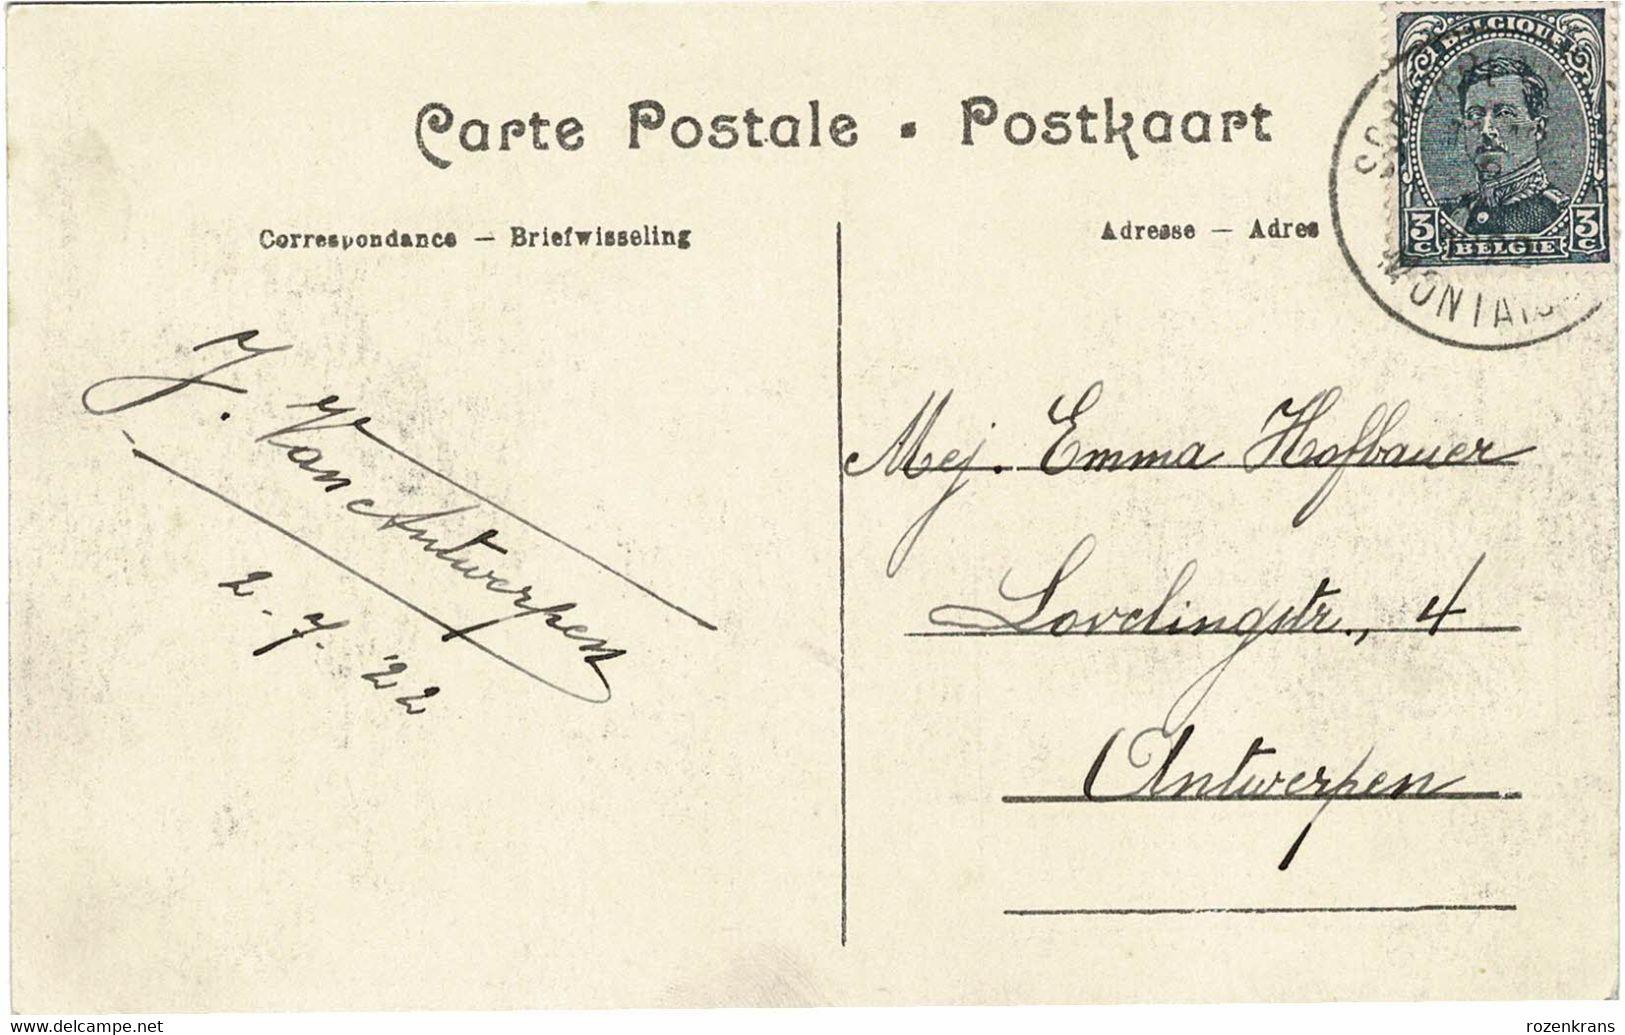 Carte Postale - Postkaart
Correspondance — Briefwisseling
Adresse — Adres
BELGIQUE
3c 3c
BELGIE
MONTAIGU
J. Van Antwerpen
2-7.'22
Mej. Emma Hofbauer
Lovelingstr., 4
Antwerpen
www.delcampe.net
rozenkrans